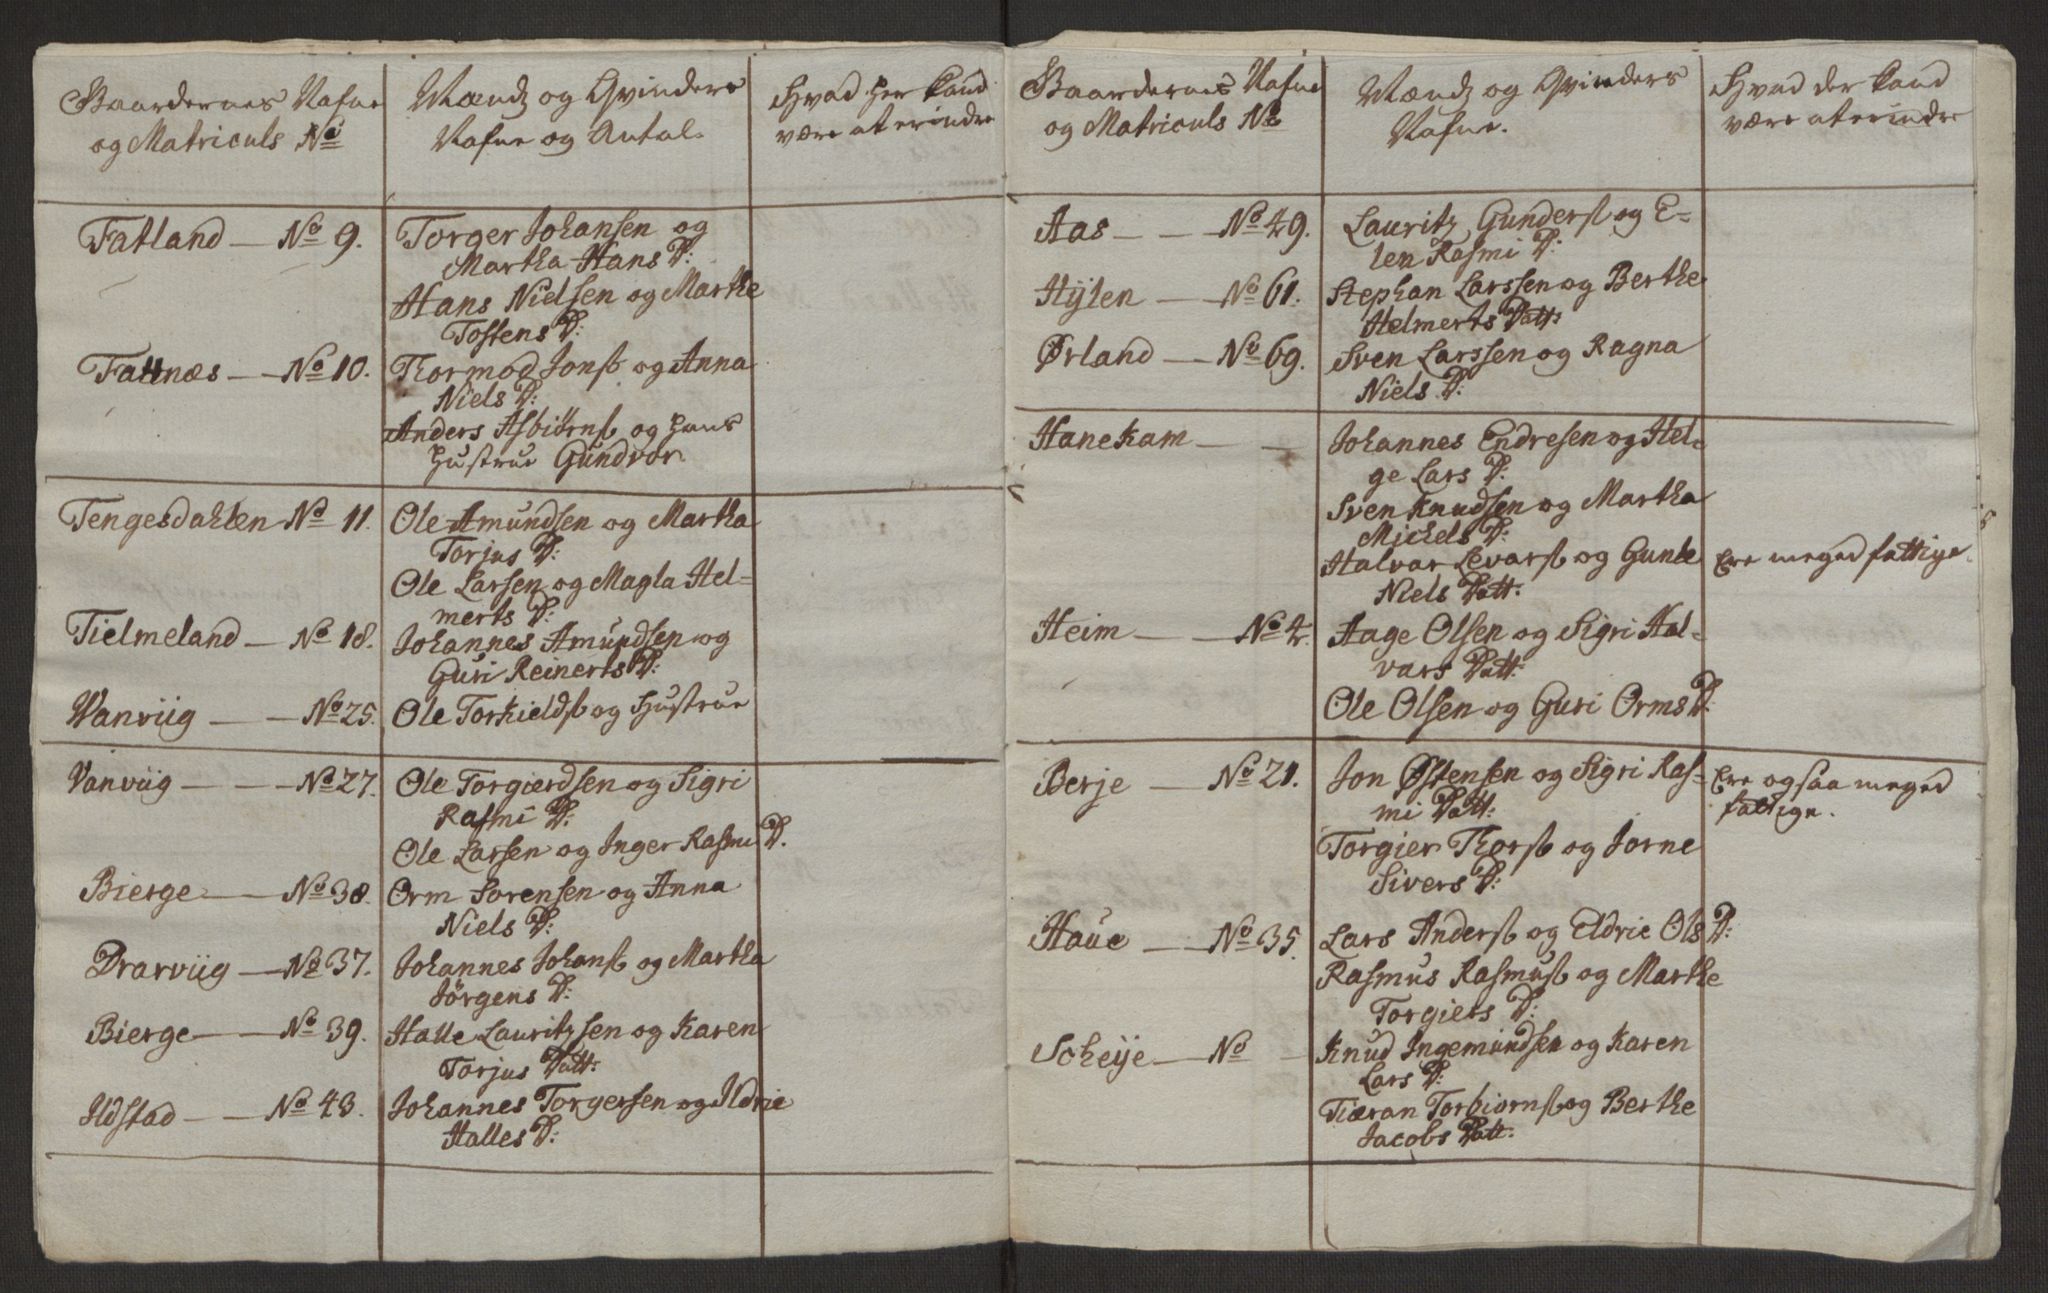 Gaardernes Nafne
og Matriculs No
Mændz og Qvinders
Nafne og Antal.
Hvad her kand
være at erindre
Fatland — No 9. Torger Johansen og
Martha Hans D:
Hans Nielsen og Marthe
Tostens D:
Fattnæs — No 10. Thormod Jonss og Anna
Niels D:
Anders Asbiørnss og hans
Hustrue Gundvor
Tengesdahlen No 11. Ole Amundsen og Martha
Torjus D:
Ole Larsen og Magla Hel=
merts D:
Tielmeland — No 18. Johannes Amundsen og
Guri Reinerts D:
Vanviig — No 25. Ole Torkieldss og Hustrue
Vanviig — No 27. Ole Torgierdsen og Sigri
Rasmi D:
Ole Larsen og Inger Rasmi D.
Bierge — No 38. Orm Sorensen og Anna
Niels D:
Drarviig — No 37. Johannes Johanss og Martha
Jörgens D:
Bierge — No 39. Halle Lauritzsen og Karen
Torjus Datt:
Ildstad — No 43. Johannes Torgersen og Ildrie
Halles D:
Gaardernes Nafne
og Matriculs No
Mændz og Qvinders
Nafne.
Hvad der kand
være at erindre
Aas — No 49. Lauritz Gunderss og E=
len Rasmi D:
Hylen — No 61. Stephan Larssen og Berthe
Helmerts Datt:
Ørland — No 69. Sven Larssen og Ragna
Niels D:
Hanekam — Johannes Endresen og Hel=
ge Lars D:
Sven Knudsen og Martha
Michels D:
Halvar Levarss og Gunle Ere meged fattige.
Niels Datt:
Heim — No 4. Aage Olsen og Sigri Hal=
vars Datt:
Ole Olsen og Guri Orms D:
Berje — No 21. Jon Østensen og Sigri Ras= Ere ogsaa meged
mi Datt: fattige.
Torgier Thorss og Jorne
Sivers D:
Haue — No 35. Lars Anderss og Eldrie Ols D:
Rasmus Rasmuss og Marthe
Torgiers D:
Scheije — No — Knud Ingemundsen og Karen
Lars D:
Tiæran Torbiornss og Berthe
Jacobs Datt: